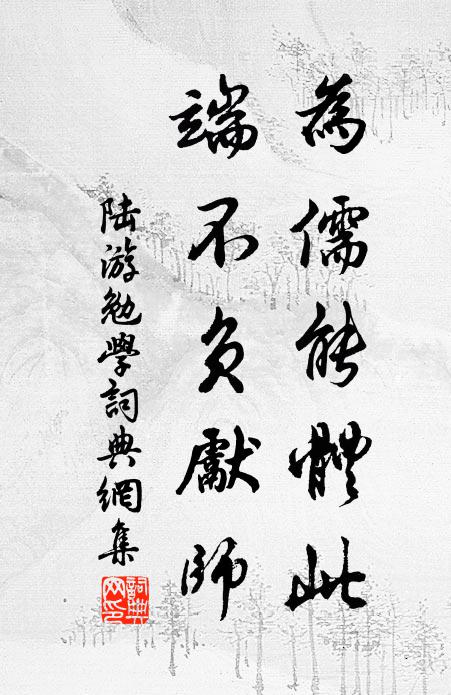 為儒能體此
端不負獻師
陸游勉學詞典網集
詞典